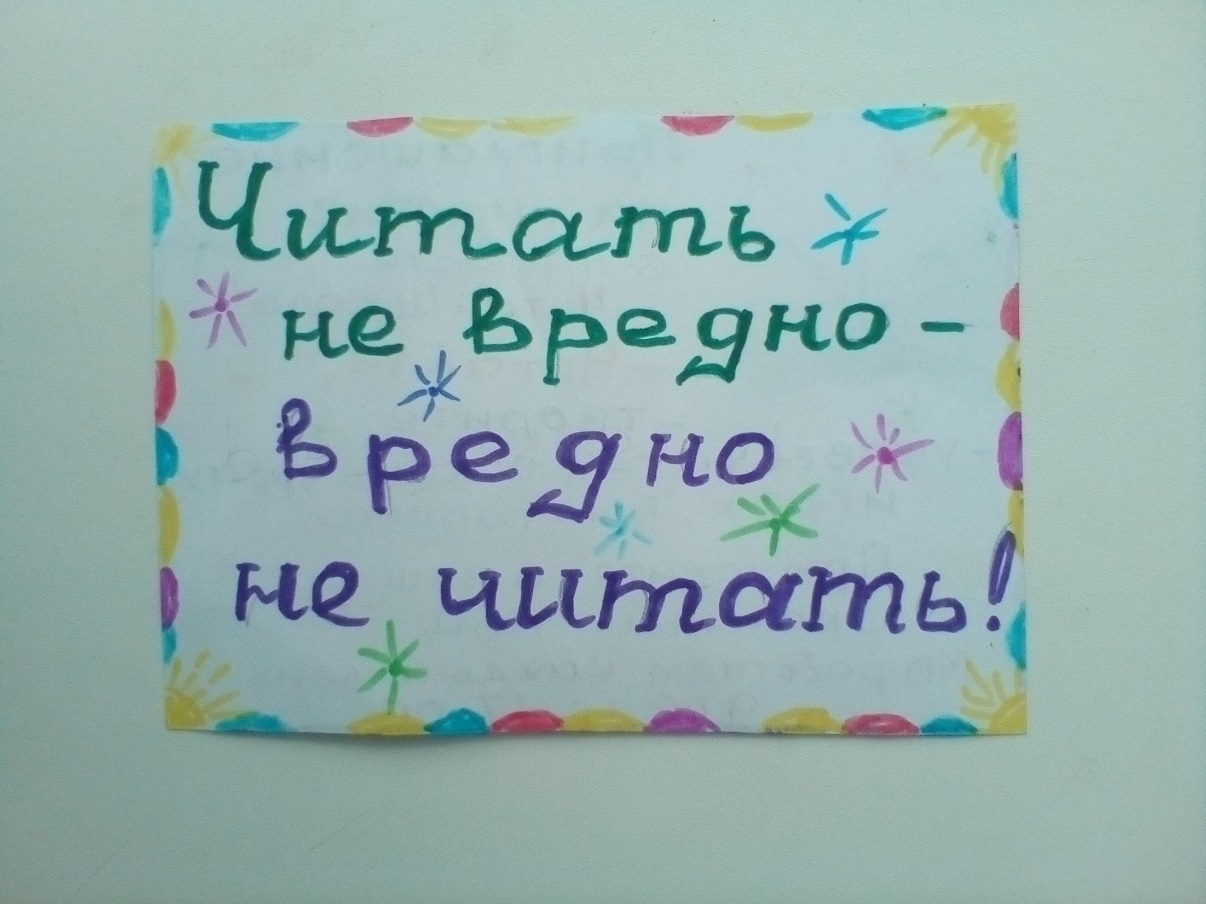 Читать
не вредно -
вредно
не читать!